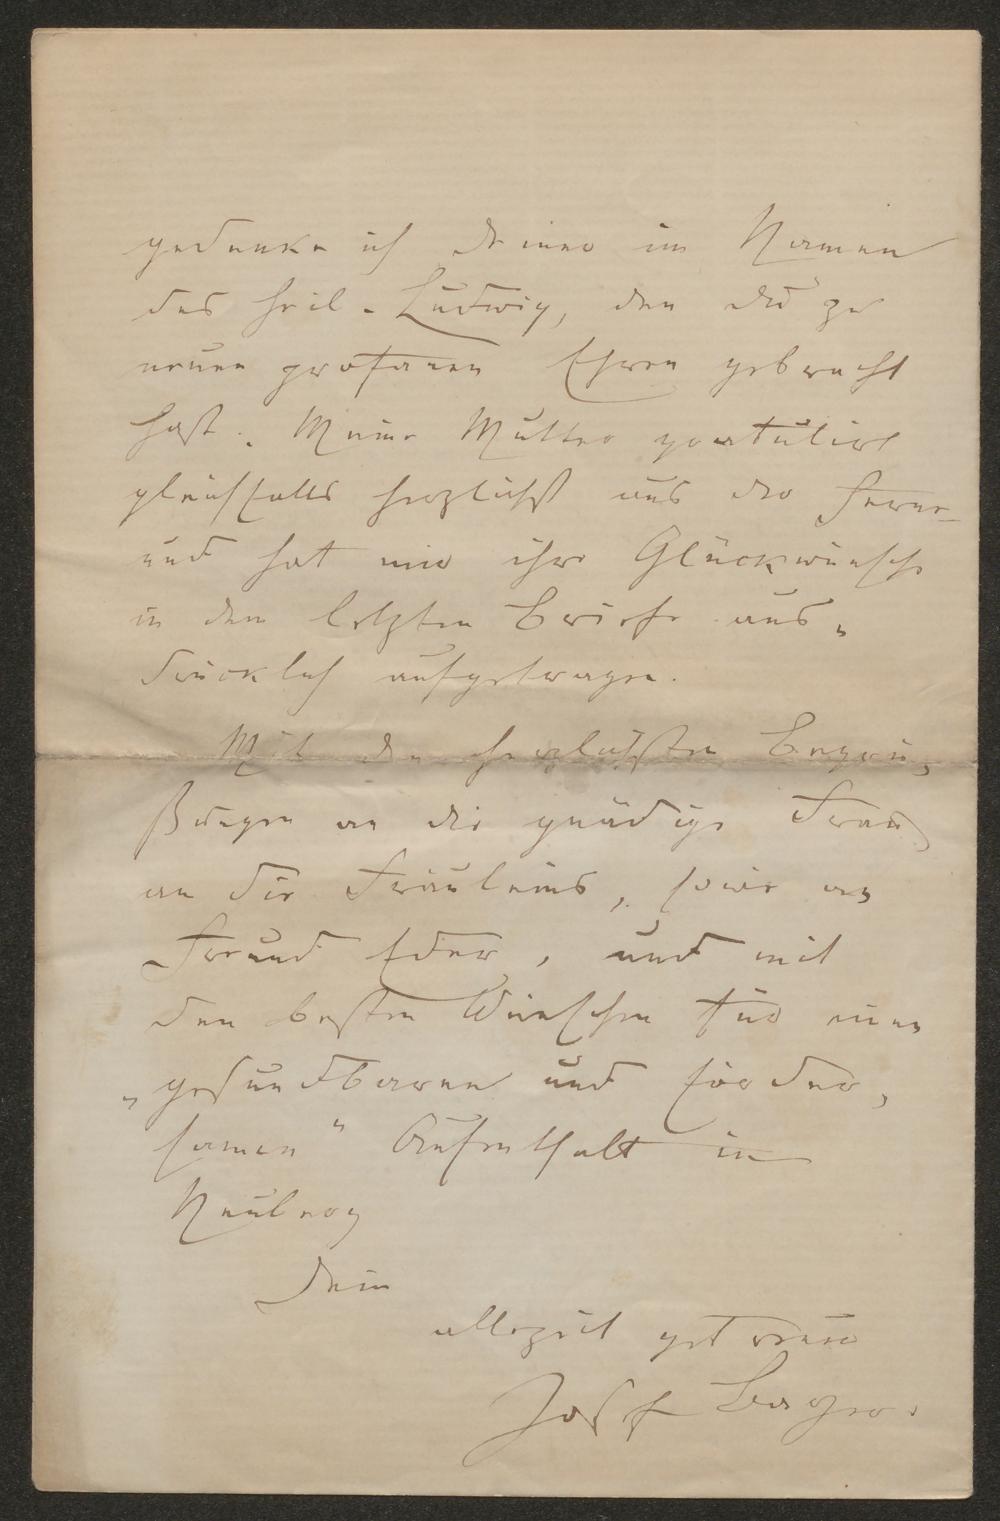 gedenke ich Deiner im Namen
des heil. Ludwig, den Du zu
neuen profanen Ehren gebracht
hast. Meine Mutter gratulirt
gleichfalls herzlichst aus der Ferne
und hat mir ihre Glückwünsche
in dem letzten Briefe aus„
drücklich aufgetragen.
Mit den herzlichsten Begrü„
ßungen an die gnädige Frau,
an die Fräuleins, sowie an
Freund Eder, und mit
den besten Wünschen für einen
„gesundbaren und förder„
samen" Aufenthalt in
Neuberg
Dein
allezeit getreuer
Josef Bayer.